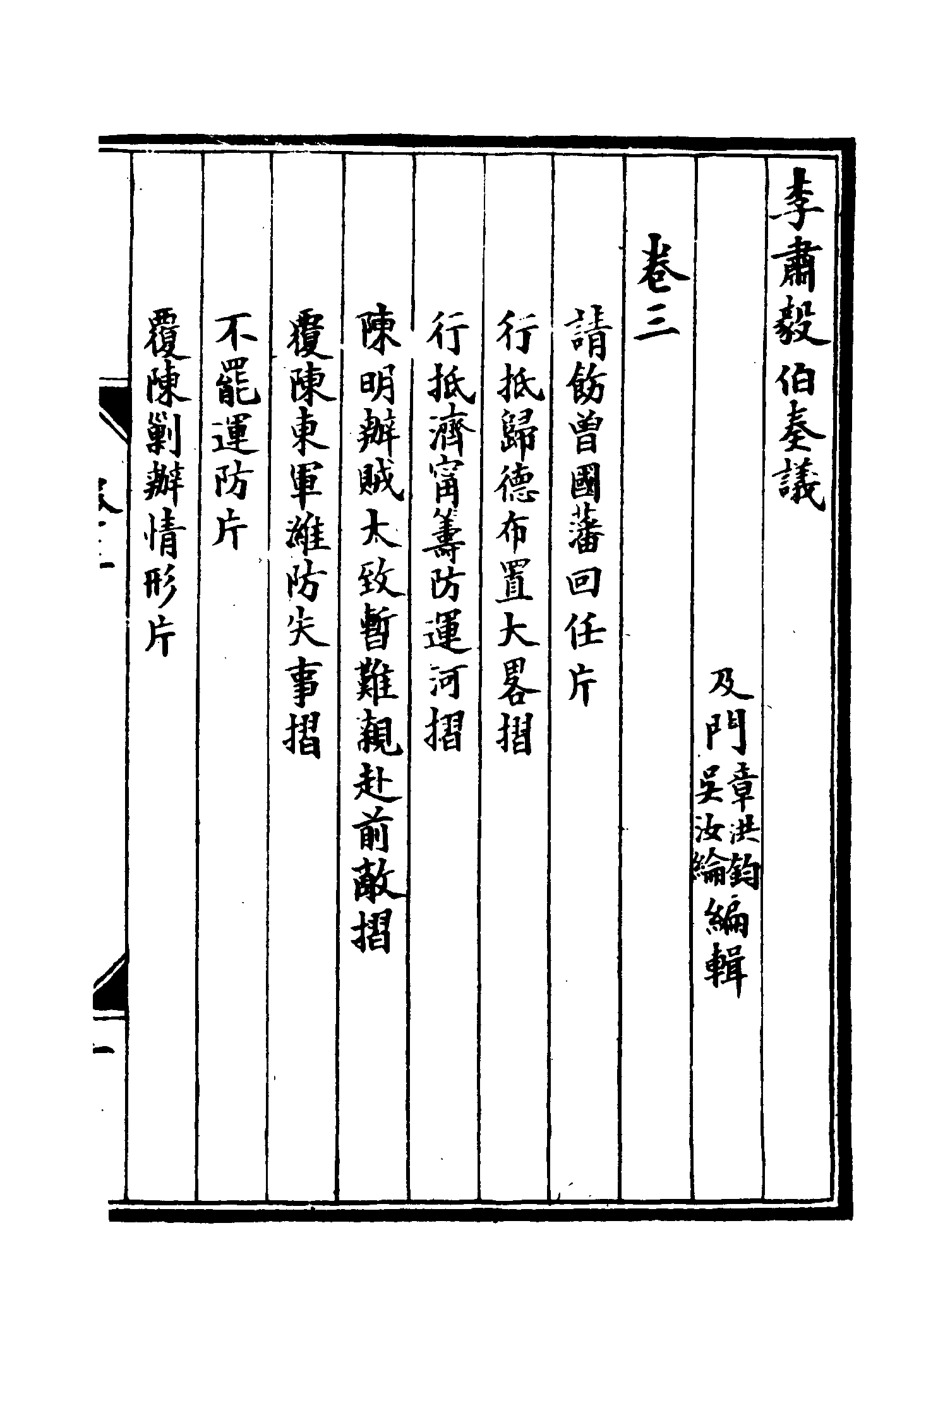 李肅毅伯奏議
及門章洪鈞吳汝綸編輯
卷三
請飭曾國藩回任片
行抵歸德布置大畧摺
行抵濟甯籌防運河摺
陳明辦賊大致暫難親赴前敵摺
覆陳東軍濰防失事摺
不罷運防片
覆陳剿辦情形片
一